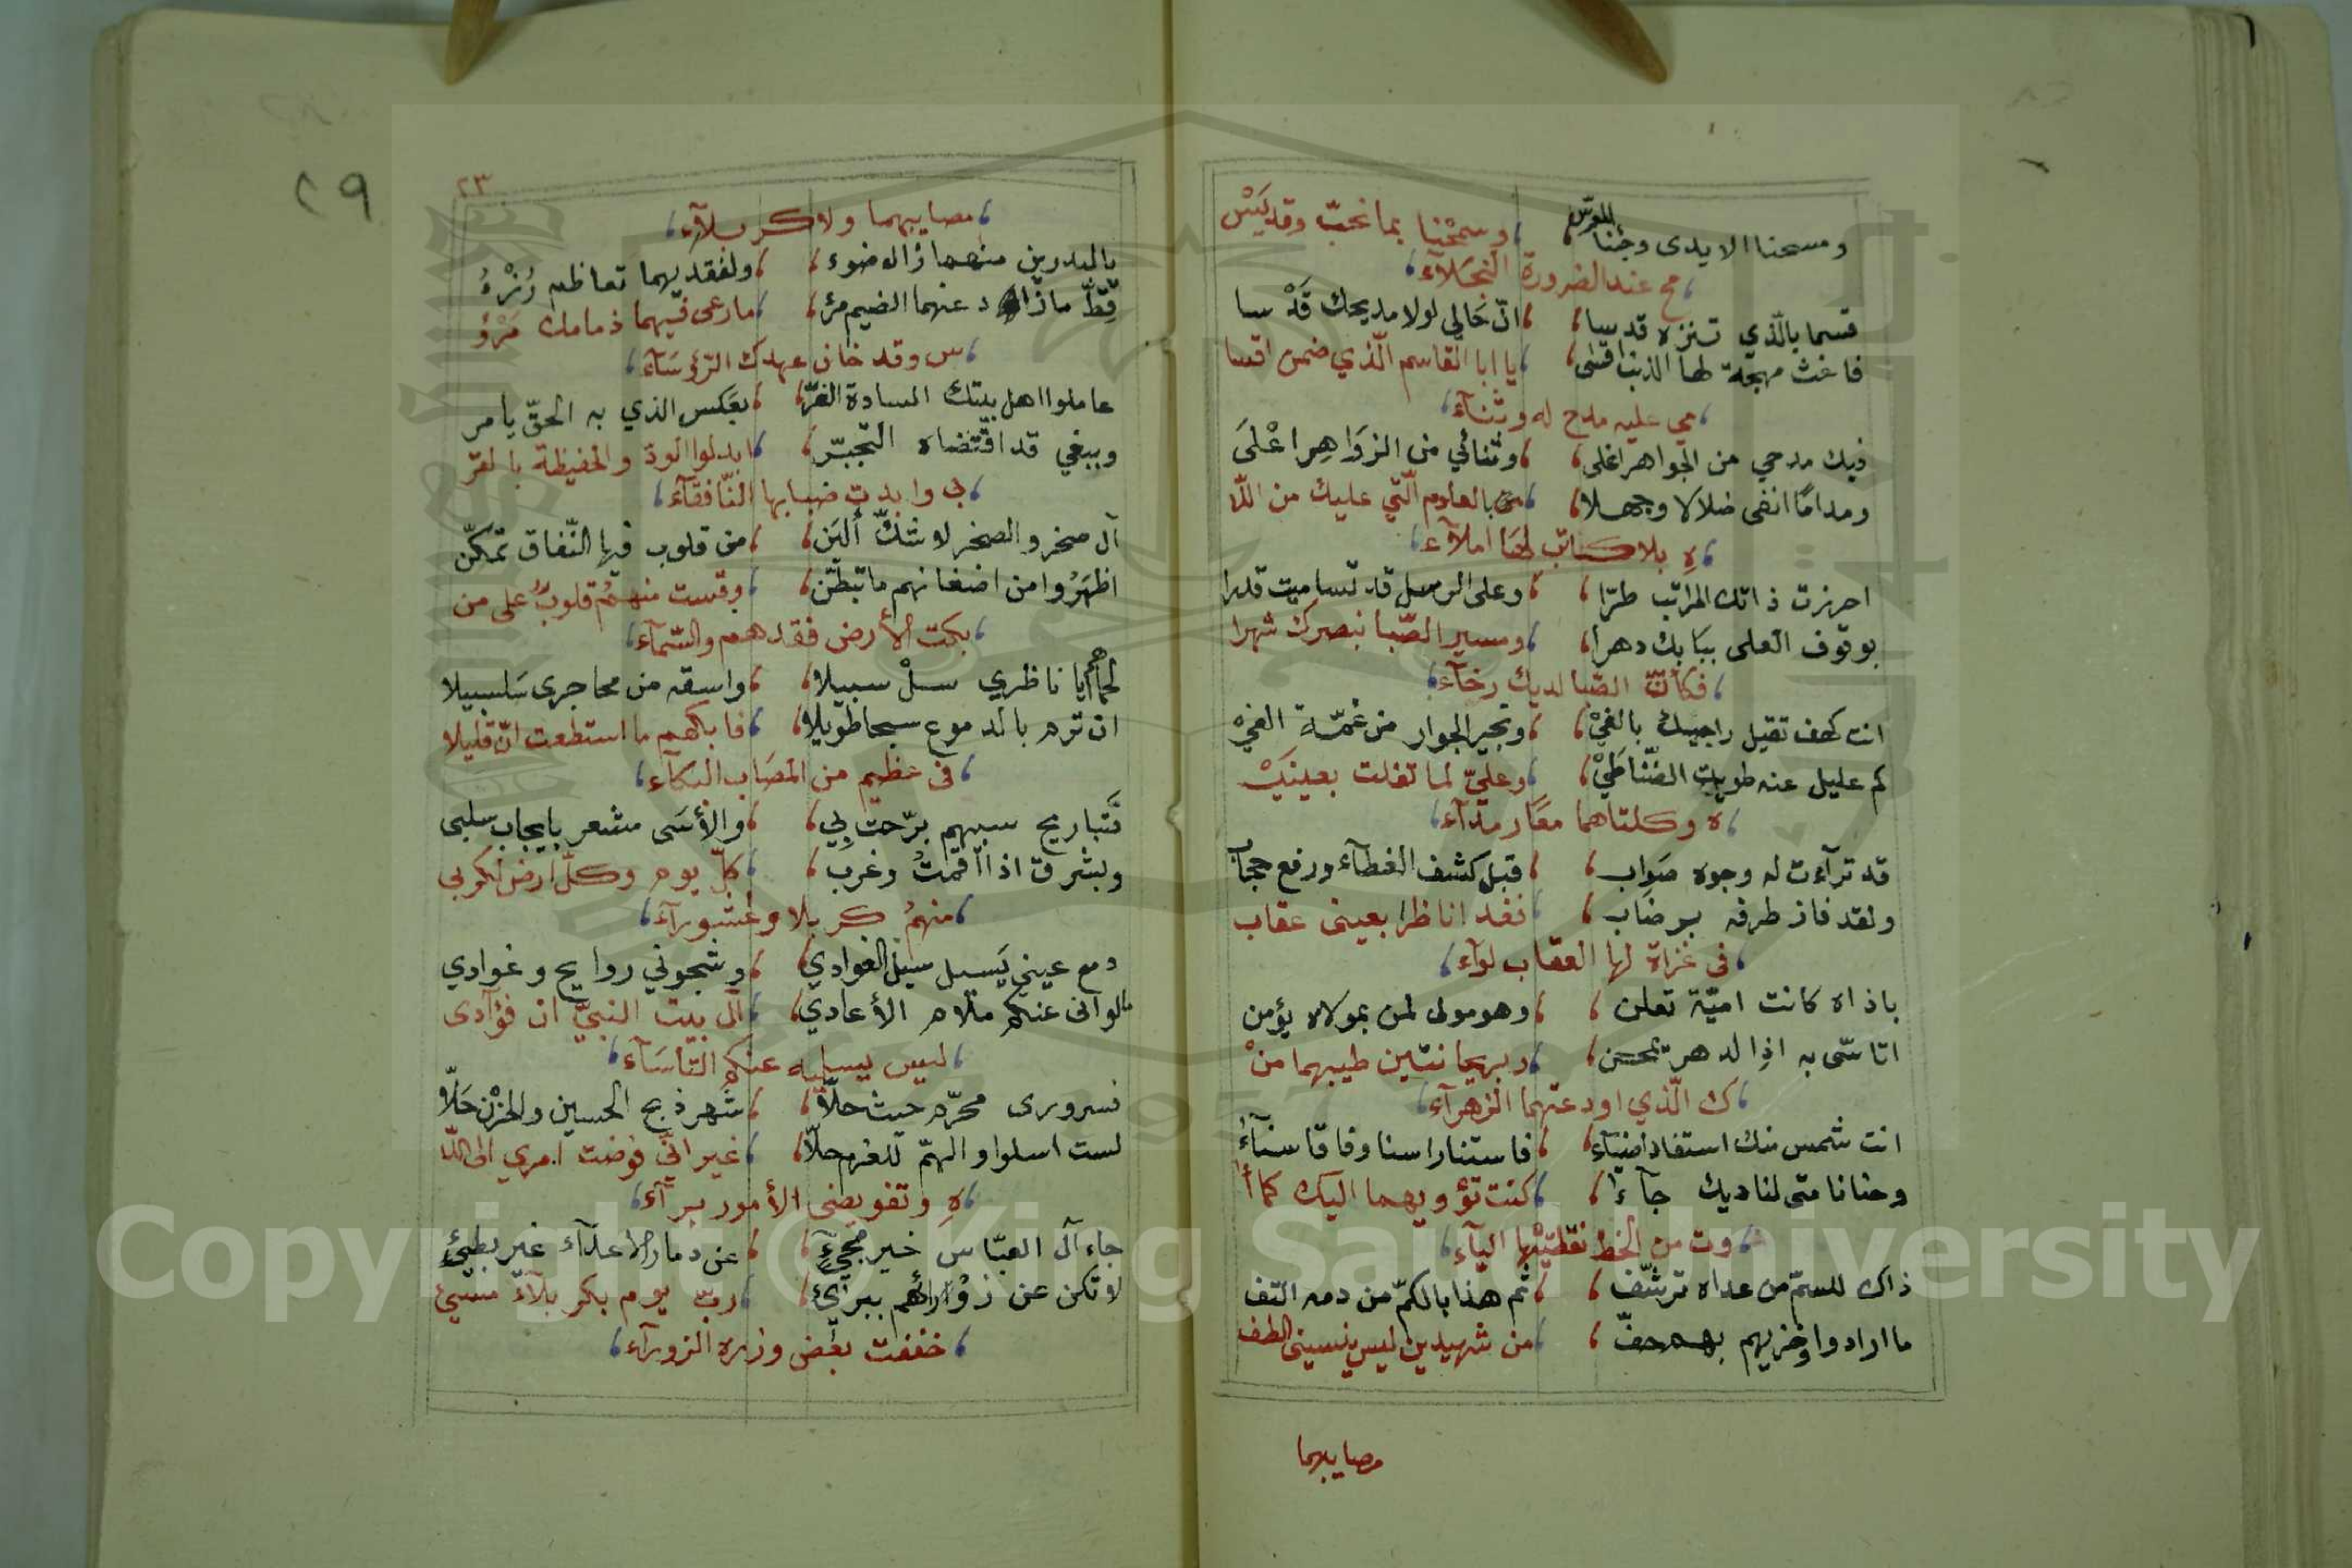 ومسحنا الايدى وجئنا للعرس ، وسمحنا بما نحبّ وقد يَبْس
مح عند الضرورة النجلآء
قسما بالّذي تنزه قدسا ، انّ حَالي لولا مديحك قَدْ سا
فاغث مهجة لها الذنب اقسى ، يا ابا القاسم الّذي ضمن اقسا
مي عليه مدح له وثنآء
فيك مدحي من الجواهر اغلى ، وثنائي من الزوَاهِر اعْلىَ
ومدامًا انفى ضلالا وجهلا ، بالعلوم الّتي عليك من اللّا
هِ بلا كاتب لها املآء
احرزت ذاتك المراتب طرّا ، وعلى الرسل قد تساميت قدرا
بوقوف العلى ببَابك دهرا ، ومسير الصّبا بنصرك شهرا
فكأنّ الصّبا لديك رخآء
انت كهف تقيل راجيك بالفيْ ، وتجير الجوار من غمّة الغيْ
كم عليل عنه طويت الضّنا طَيْ ، وعليّ لما تفلت بعينَيْ
ه وكلتاهما معًا رمدآء
قد ترآءت له وجوه صَواب ، قبل كشف الغطآء ورفع حجاب
ولقد فاز طرفه برضاب ، فغدا ناظرا بعينى عقاب
في غزاة لها العقاب لوآء
باذاه كانت اميّة تعلن ، وهو مولى لمن بمولاه يؤمن
اتاسّى به اذا لدهر تمحّن ، وبريحانتين طيبهما منْ
ك الّذي اودعتهما الزهرآء
انت شمس منك استفادا ضيآء ، فاستنارا سنا وفاقا سنآءً
وحنانا متى لناديك جآءا ، كنت تؤويهما اليك كما أ
وت من الخط نقطتيْها اليآء
ذاك للسمّ من عداه ترشّف ، ثم هذا بالكمّ من دمه التف
ما ارادوا وخزيهم بهم حفّ ، من شهيدين ليس ينسينى الطف
مصايبهما
٢٣
٢٩
مصايبهما ولا كربلآء
يا لبدرين منهما زال ضوء ، ولفقديهما تعاظم رُزْءُ
قطّ ما ذاد عنهما الضيم مرْء ، ما رعى فيهما ذمامك مَرْؤ
س وقد خان عهدك الرّؤسَآء
عاملوا اهل بيتك السادة الغرّ ، بعَكس الذي به الحقّ يامر
وببغي قد اقتضاه التجبّر ، ابدلوا الودّ والحفيظة بالقر
بى وابدت ضبابها النّافقآء
آل صخر والصخر لا شكّ ألين ، من قلوب فيها النّفاق تمكّن
اظهَرُوا من اضغانهم ما تبطّن ، وقست منهمُ قلوبٌ على من
بكت الأرض فقدهم والسّمآء
لحماهم أيا ناظري سلْ سبيلا ، واسقه من محاجرى سَلسبيلا
ان ترم بالدموع سبحا طويلا ، فابكهم ما استطعت انّ قليلا
في عظيم من المصَاب البكآء
فتباريح سبيهم برّحت بي ، والأسَى مشعر بايجاب سلبى
وبشرق اذا اقمتُ وغرب ، كلّ يوم وكلّ ارض لكربي
منهمُ كربلا وعشورآء
دمع عيني يَسيل سيْل الغوادي ، وشجوني روايح وغوادي
مالوآنى عنكم ملام الأعادي ، آل بيت النبيّ ان فؤآدى
ليس يسليه عنكمُ التّاسَآء
فسرورى محرّم حيث حلّا ، شهر ذبح الحسين والحزْن حَلّا
لست اسلوا والهمّ للعزم حلّا ، غير انّي فوّضت امري الى اللّا
هِ وتفويضى الأمور برآء
جاء آل العبّاس خير مجيءٍ ، عن دمار الاعدآء غير بطيئٍ
لا تكن عن زوّارهم ببرئ ، ربّ يوم بكربلآء مسيئ
خففت بعض وزره الزورآء
Copyright © King Saud University
1957